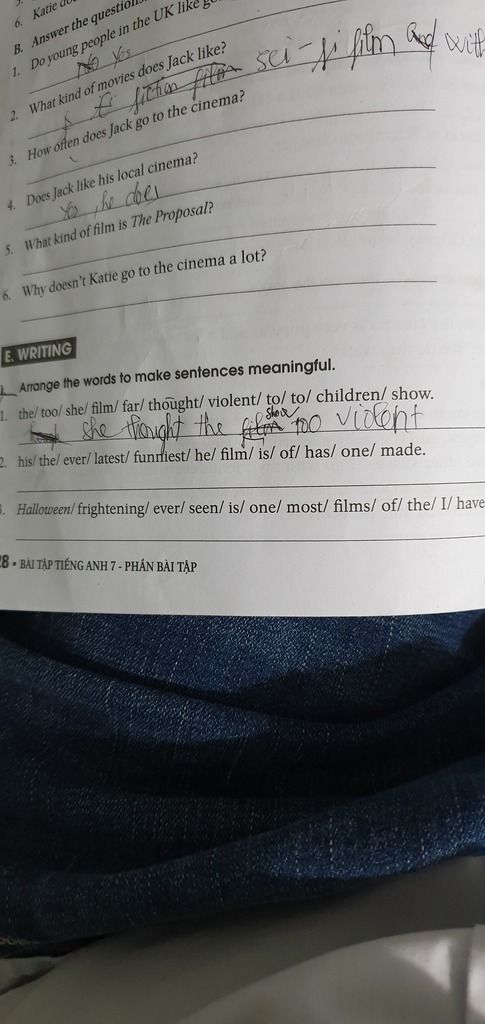 6. Katie do
B. Answer the question
1. Do young people in the UK like g
No Yes
2. What kind of movies does Jack like?
fiction film sci-fi film and with
3. How often does Jack go to the cinema?
4. Does Jack like his local cinema?
Yes, he does
5. What kind of film is The Proposal?
6. Why doesn't Katie go to the cinema a lot?
E. WRITING
Arrange the words to make sentences meaningful.
1. the/ too/ she/ film/ far/ thought/ violent/ to/ to/ children/ show.
she thought the film show too violent
2. his/ the/ ever/ latest/ funniest/ he/ film/ is/ of/ has/ one/ made.
3. Halloween/ frightening/ ever/ seen/ is/ one/ most/ films/ of/ the/ I/ have
28 • BÀI TẬP TIẾNG ANH 7 - PHẦN BÀI TẬP